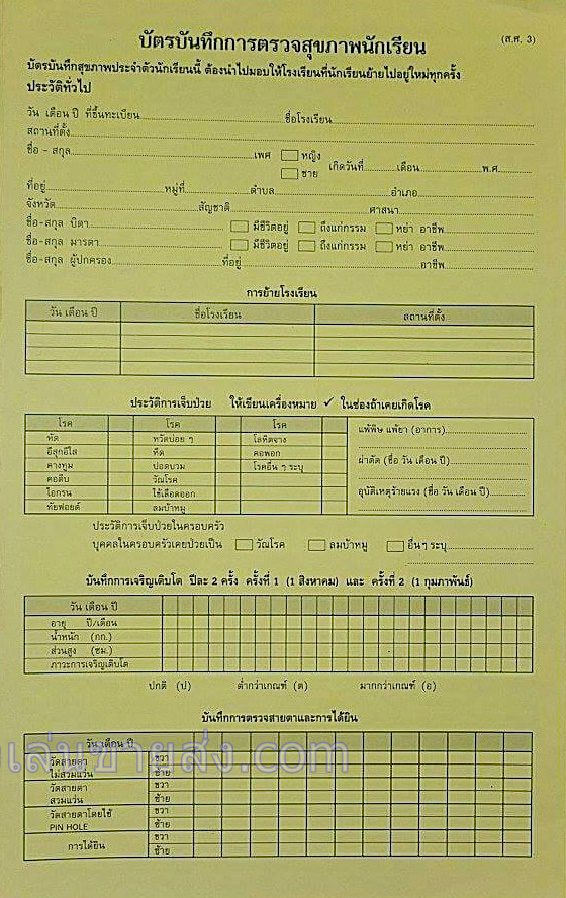 บัตรบันทึกการตรวจสุขภาพนักเรียน (ส.ศ. 3)
บัตรบันทึกสุขภาพประจำตัวนักเรียนนี้ ต้องนำไปมอบให้โรงเรียนที่นักเรียนย้ายไปอยู่ใหม่ทุกครั้ง
ประวัติทั่วไป
วัน เดือน ปี ที่ขึ้นทะเบียน ชื่อโรงเรียน
สถานที่ตั้ง
ชื่อ - สกุล เพศ หญิง เกิดวันที่ เดือน พ.ศ.
ชาย
ที่อยู่ หมู่ที่ ตำบล อำเภอ
จังหวัด สัญชาติ ศาสนา
ชื่อ-สกุล บิดา มีชีวิตอยู่ ถึงแก่กรรม หย่า อาชีพ
ชื่อ-สกุล มารดา มีชีวิตอยู่ ถึงแก่กรรม หย่า อาชีพ
ชื่อ-สกุล ผู้ปกครอง ที่อยู่ อาชีพ
การย้ายโรงเรียน
วัน เดือน ปี ชื่อโรงเรียน สถานที่ตั้ง
ประวัติการเจ็บป่วย ให้เขียนเครื่องหมาย ✓ ในช่องถ้าเคยเกิดโรค
โรค โรค โรค แพ้พิษ แพ้ยา (อาการ)
หัด หวัดบ่อย ๆ โลหิตจาง
อีสุกอีใส หืด คอพอก
คางทูม ปอดบวม โรคอื่น ๆ ระบุ ผ่าตัด (ชื่อ วัน เดือน ปี)
คอตีบ วัณโรค
ไอกรน ไข้เลือดออก อุบัติเหตุร้ายแรง (ชื่อ วัน เดือน ปี)
ทัยฟอยด์ ลมบ้าหมู
ประวัติการเจ็บป่วยในครอบครัว
บุคคลในครอบครัวเคยป่วยเป็น วัณโรค ลมบ้าหมู อื่นๆ ระบุ
บันทึกการเจริญเติบโต ปีละ 2 ครั้ง ครั้งที่ 1 (1 สิงหาคม) และ ครั้งที่ 2 (1 กุมภาพันธ์)
วัน เดือน ปี
อายุ ปี/เดือน
น้ำหนัก (กก.)
ส่วนสูง (ซม.)
ภาวะการเจริญเติบโต
ปกติ (ป) ต่ำกว่าเกณฑ์ (ต) มากกว่าเกณฑ์ (อ)
บันทึกการตรวจสายตาและการได้ยิน
วัน เดือน ปี
วัดสายตา ขวา
ไม่สวมแว่น ซ้าย
วัดสายตา ขวา
สวมแว่น ซ้าย
วัดสายตาโดยใช้ ขวา
PIN HOLE ซ้าย
การได้ยิน ขวา
ซ้าย
เล่นขายส่ง.com